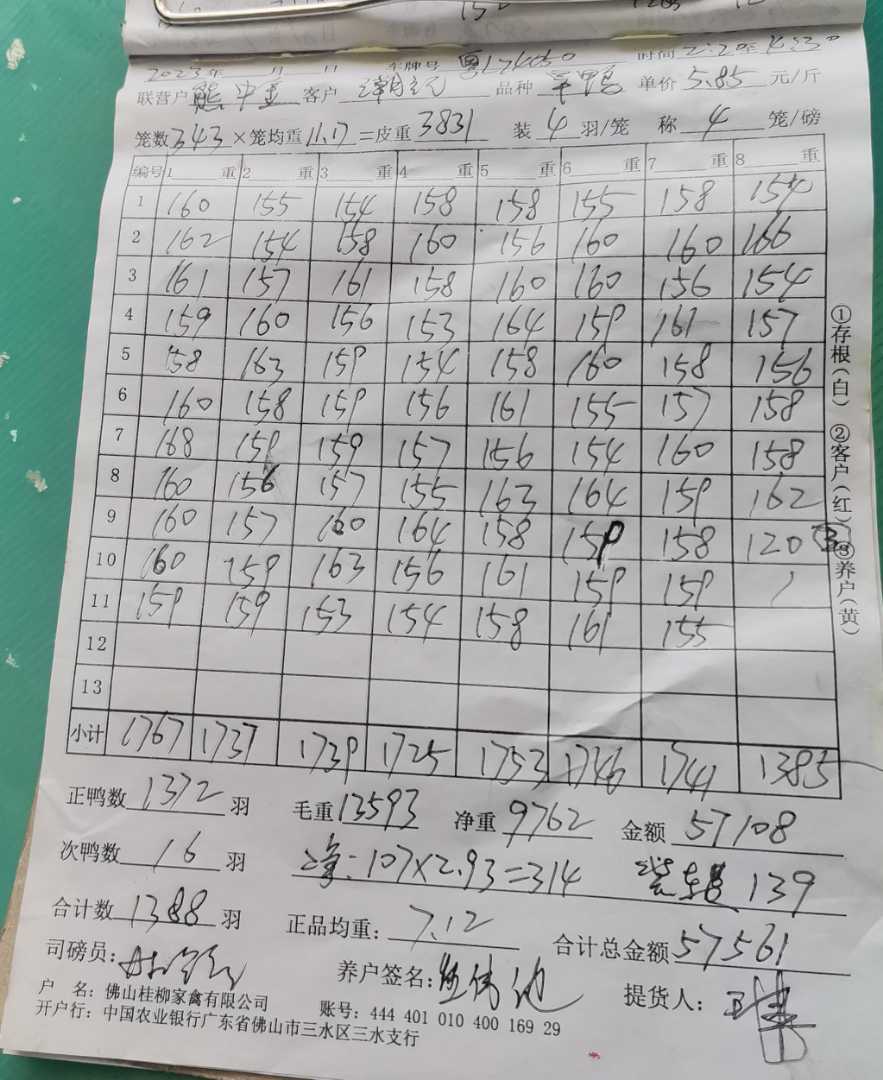 2023年 月 日 车牌号 粤L74050 时间 2:20至4:30
联营户 熊中 客户 品种 单价 5.85 元/斤
笼数 343 ×笼均重 11.17 =皮重 3831 装 4 羽/笼 称 4 笼/磅
编号 1 重 2 重 3 重 4 重 5 重 6 重 7 重 8 重
1 160 155 154 158 158 155 158 154
2 162 154 158 160 156 160 160 166
3 161 157 161 158 160 160 156 154
4 159 160 156 153 164 159 161 157
5 158 163 159 154 158 160 158 156
6 160 158 159 156 161 155 157 158
7 168 159 159 157 156 154 160 158
8 160 156 157 155 163 164 159 162
9 160 157 160 164 158 159 158 120 ③
10 160 159 163 156 161 159 159 /
11 159 159 153 154 158 161 155
12
13
小计 1767 1737 1739 1725 1753 1746 1741 1385
①存根(白) ②客户(红) ③养户(黄)
正鸭数 1372 羽 毛重 13593 净重 9762 金额 57108
次鸭数 16 羽 净: 107×2.93=314 139
合计数 1388 羽 正品均重: 7.12 合计总金额 57561
司磅员: 养户签名: 提货人:
户 名: 佛山桂柳家禽有限公司 账号: 444 401 010 400 169 29
开户行: 中国农业银行广东省佛山市三水区三水支行